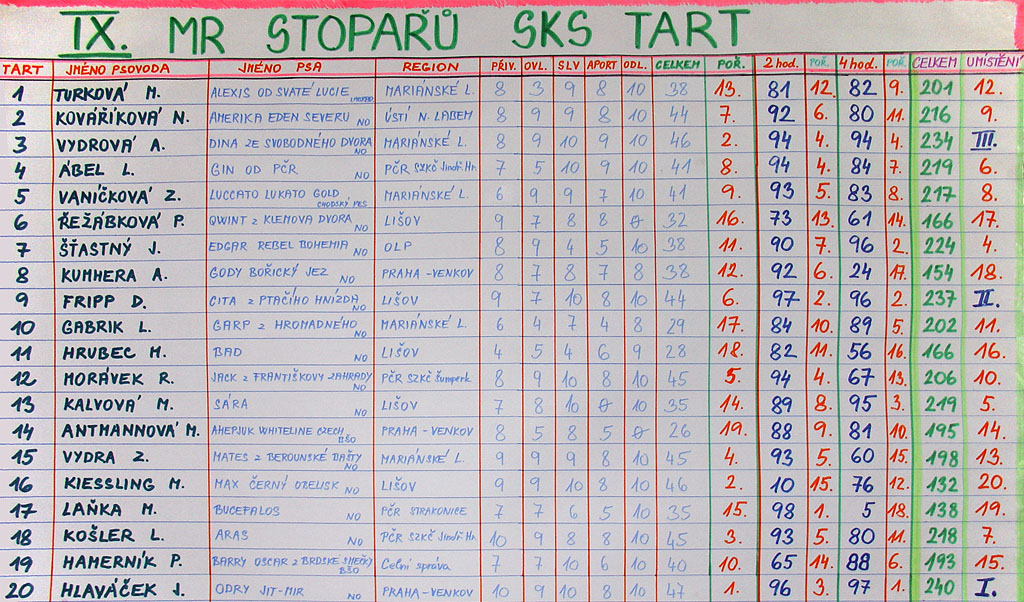 IX. MR STOPAŘŮ SKS TART
TART JMÉNO PSOVODA JMÉNO PSA REGION PŘÍV. OVL. SLV APORT ODL. CELKEM POŘ. 2 hod. POŘ. 4 hod. POŘ. CELKEM UMÍSTĚNÍ
1 TURKOVÁ M. ALEXIS OD SVATÉ LUCIE MARIÁNSKÉ L. 8 3 9 8 10 38 13. 81 12. 82 9. 201 12.
2 KOVÁŘÍKOVÁ N. AMERIKA EDEN SEVERU NO ÚSTÍ N. LABEM 8 9 9 8 10 44 7. 92 6. 80 11. 216 9.
3 VYDROVÁ A. DINA ZE SVOBODNÉHO DVORA NO MARIÁNSKÉ L. 8 9 10 9 10 46 2. 94 4. 94 4. 234 III.
4 ÁBEL L. GIN OD PČR NO PČR SZKČ Jindř. Hr. 7 5 10 9 10 41 8. 94 4. 84 7. 219 6.
5 VANÍČKOVÁ Z. LUCCATO LUKATO GOLD CHODSKÝ PES MARIÁNSKÉ L. 6 9 9 7 10 41 9. 93 5. 83 8. 217 8.
6 ŘEŽÁBKOVÁ P. QWINT z KLEMOVA DVORA NO LIŠOV 9 7 8 8 0 32 16. 73 13. 61 14. 166 17.
7 ŠŤASTNÝ J. EDGAR REBEL BOHEMIA NO OLP 8 9 4 5 10 38 11. 90 7. 96 2. 224 4.
8 KUMHERA A. GODY BOŘICKÝ JEZ NO PRAHA - VENKOV 8 7 8 7 8 38 12. 92 6. 24 17. 154 18.
9 FRIPP D. CITA z PTAČÍHO HNÍZDA NO LIŠOV 9 7 10 8 10 44 6. 97 2. 96 2. 237 II.
10 GABRIK L. GARP z HROMADNÉHO NO MARIÁNSKÉ L. 6 4 7 4 8 29 17. 84 10. 89 5. 202 11.
11 HRUBEC M. BAD NO LIŠOV 4 5 4 6 9 28 18. 82 11. 56 16. 166 16.
12 MORÁVEK R. JACK z FRANTIŠKOVY ZAHRADY NO PČR SZKČ Šumperk 8 9 10 8 10 45 5. 94 4. 67 13. 206 10.
13 KALVOVÁ M. SÁRA NO LIŠOV 7 8 10 0 10 35 14. 89 8. 95 3. 219 5.
14 ANTMANNOVÁ M. AHEPJUK WHITELINE CZECH BŠO PRAHA - VENKOV 8 5 8 5 0 26 19. 88 9. 81 10. 195 14.
15 VYDRA Z. MATES z BEROUNSKÉ BAŠTY NO MARIÁNSKÉ L. 9 9 9 8 10 45 4. 93 5. 60 15. 198 13.
16 KIESSLING M. MAX ČERNÝ OBELISK NO LIŠOV 9 9 10 8 10 46 2. 10 15. 76 12. 132 20.
17 LAŇKA M. BUCEFALOS NO PČR STRAKONICE 7 7 6 5 10 35 15. 98 1. 5 18. 138 19.
18 KOŠLER L. ARAS NO PČR SZKČ Jindř. Hr. 10 9 8 8 10 45 3. 93 5. 80 11. 218 7.
19 HAMERNÍK P. BARRY OSCAR z BRDSKÉ SMEČKY BŠO Celní správa 7 7 10 6 10 40 10. 65 14. 88 6. 193 15.
20 HLAVÁČEK J. ODRY JIT-MIR NO PRAHA - VENKOV 10 9 10 8 10 47 1. 96 3. 97 1. 240 I.